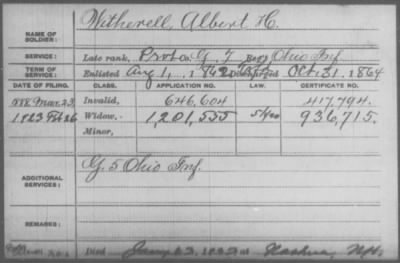 NAME OF SOLDIER: Witherell, Albert H.
SERVICE: Late rank, Pvt Co. G, 7 Reg't Ohio Inf
TERM OF SERVICE: Enlisted Aug 1, Oct. 31. 1864
DATE OF FILING. CLASS. APPLICATION NO. LAW. CERTIFICATE NO.
Mar. 23, Invalid, 646,604 417,794.
Widow, 1,201,555 936,715.
Minor,
ADDITIONAL SERVICES: G. 5 Ohio Inf.
REMARKS:
Died at Nashua, N.H.